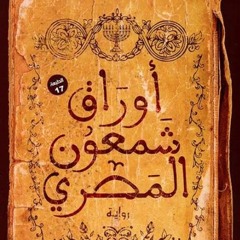 الطبعة
17
أَورَاق
شَمعوُن
المَصرِي
رواية